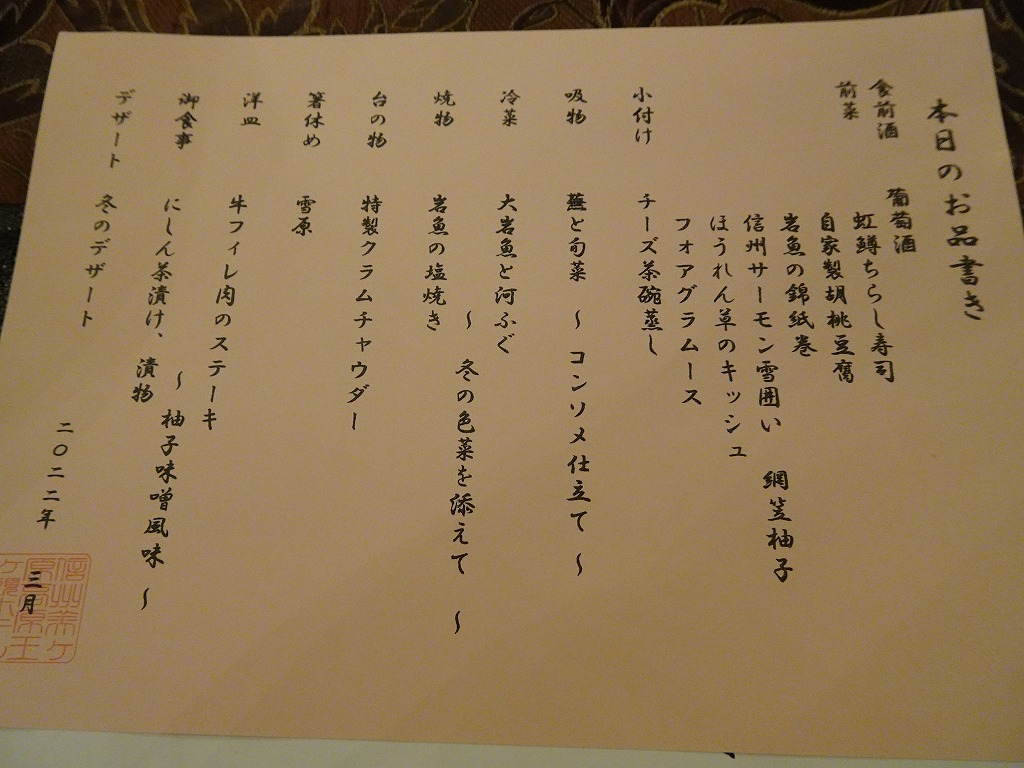 本日のお品書き
食前酒 葡萄酒
前菜 虹鱒ちらし寿司
自家製胡桃豆腐
岩魚の錦紙巻
信州サーモン雪囲い 網笠柚子
ほうれん草のキッシュ
フォアグラムース
小付け チーズ茶碗蒸し
吸物 蕪と旬菜 ～ コンソメ仕立て ～
冷菜 大岩魚と河ふぐ
～ 冬の色菜を添えて ～
焼物 岩魚の塩焼き
台の物 特製クラムチャウダー
箸休め 雪原
洋皿 牛フィレ肉のステーキ
～ 柚子味噌風味 ～
御食事 にしん茶漬け、 漬物
デザート 冬のデザート
二〇二二年 三月